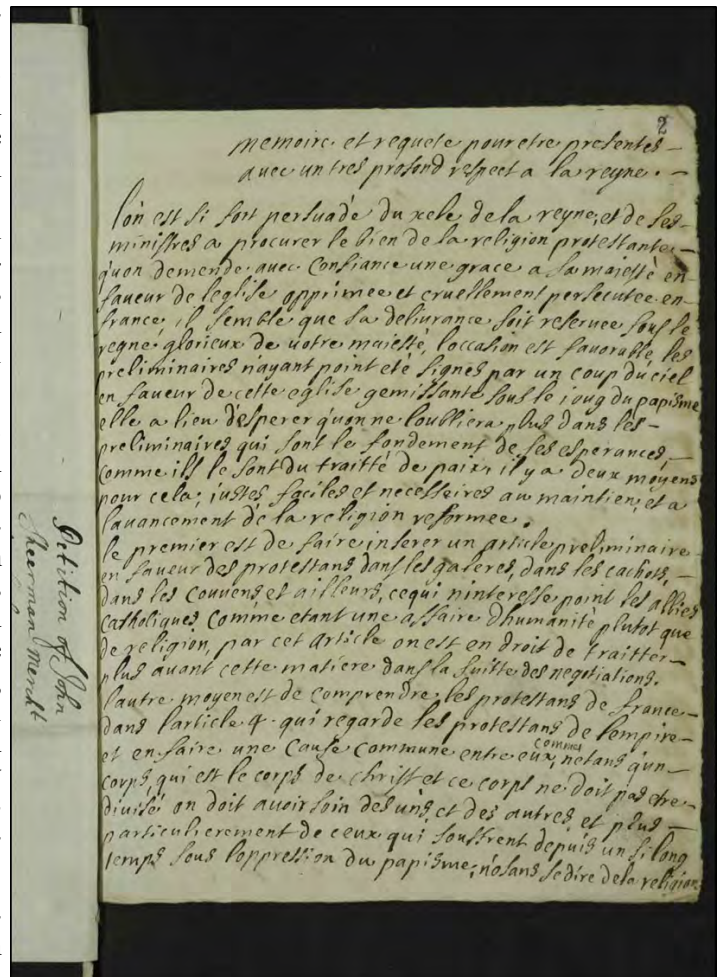 2
memoire et requete pour etre presentes
avec un tres profond respect a la reyne.
l'on est si fort persuadé du zele de la reyne, et de ses
ministres a procurer le bien de la religion protestante
qu'on demende avec confiance une grace a sa majesté en
faveur de leglise opprimee et cruellement persecutee en
france, il semble que sa delivrance soit reservee sous le
regne glorieux de votre majesté, loccasion est favorable, les
preliminaires n'ayant point eté signés par un coup du ciel
en faveur de cette eglise gemissante sous le joug du papisme
elle a lieu d'esperer qu'on ne loubliera plus dans les
preliminaires qui sont le fondement de ses esperances,
comme ils le sont du traitté de paix, il y a deux moyens
pour cela; justes faciles et necessaires au maintien, et a
lavancement de la religion reformee.
le premier est de faire inserer un article preliminaire
en faveur des protestans dans les galeres, dans les cachots,
dans les couvens et ailleurs, ce qui ninteresse point les alliés
catholiques comme etant une affaire dhumanité plutot que
de religion, par cet article on est en droit de traitter
plus avant cette matiere dans la suitte des negotiations.
lautre moyen est de comprendre les protestans de france
dans larticle 4. qui regarde les protestans de lempire
et en faire une cause commune entre eux, comme netans qu'un
corps, qui est le corps de christ et ce corps ne doit pas etre
divisé on doit avoir soin des uns, et des autres et plus
particulierement de ceux qui souffrent depuis un si long
temps sous loppression du papisme; n'osans se dire de la religion
Petition of John
Sheerman Mercht